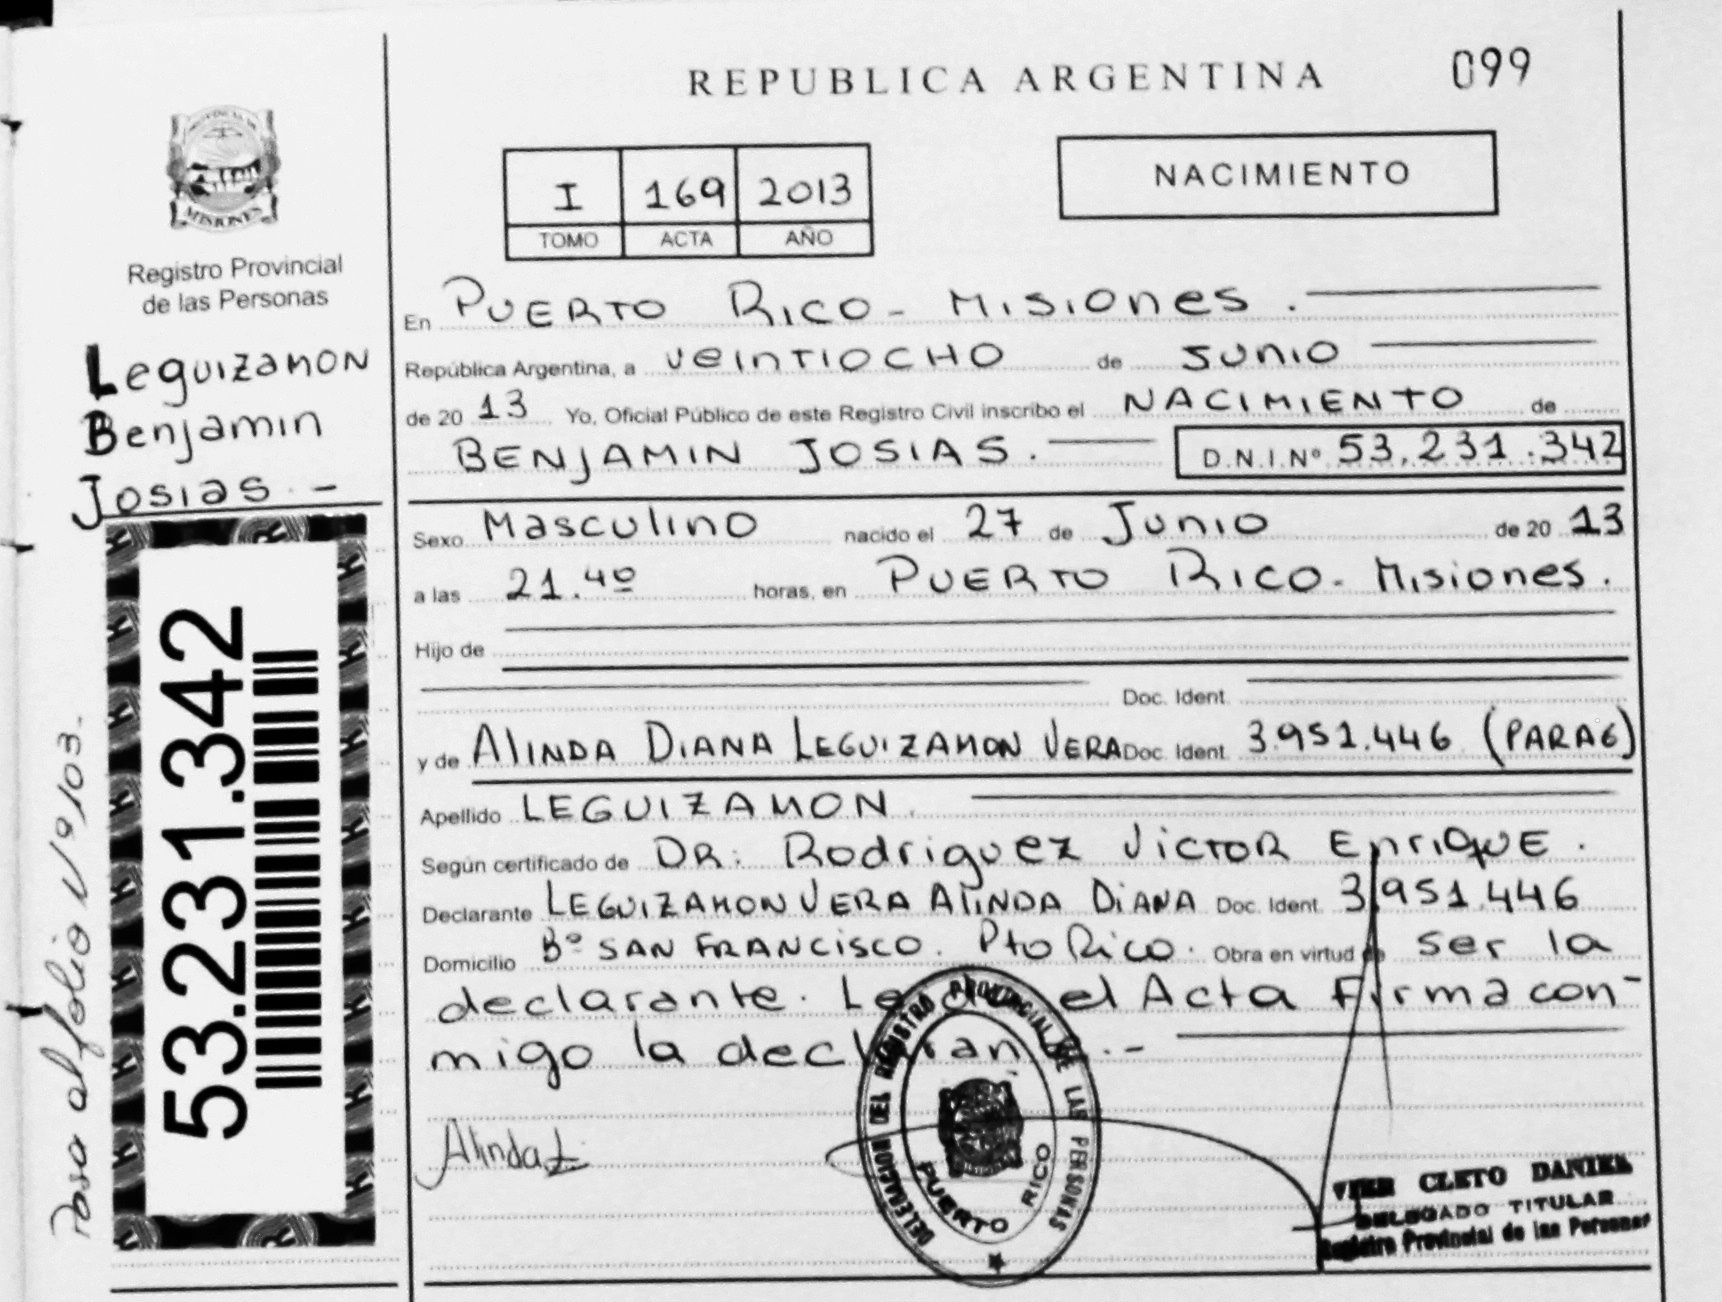 REPUBLICA ARGENTINA
099
PROVINCIA DE
MISIONES
Registro Provincial
de las Personas
Leguizamon
Benjamin
Josias.-
53.231.342
Paso al folio Nº 103.-
I 169 2013
TOMO ACTA AÑO
NACIMIENTO
En PUERTO RICO - Misiones.
República Argentina, a veintiocho de Junio
de 20 13 Yo, Oficial Público de este Registro Civil inscribo el NACIMIENTO de
BENJAMIN JOSIAS. D.N.I.Nº 53.231.342
Sexo Masculino nacido el 27 de Junio de 20 13
a las 21.40 horas, en PUERTO RICO - Misiones.
Hijo de
Doc. Ident.
y de ALINDA DIANA LEGUIZAMON VERA Doc. Ident. 3.951.446 (PARAG)
Apellido LEGUIZAMON.
Según certificado de DR: Rodriguez Victor Enrique.
Declarante LEGUIZAMON VERA ALINDA DIANA Doc. Ident. 3.951.446
Domicilio Bº SAN FRANCISCO. Pto Rico. Obra en virtud de ser la
declarante. Leída el Acta Firma con-
migo la declarante.-
Alinda L
DELEGACION DEL REGISTRO PROVINCIAL DE LAS PERSONAS
PUERTO RICO
VIER CLETO DANIEL
DELEGADO TITULAR
Registro Provincial de las Personas